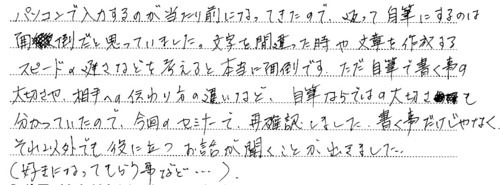 パソコンで入力するのが当たり前になってきたので、返って自筆にするのは
面倒だと思っていました。文字を間違った時や文章を作成する
スピードの遅さなどを考えると本当に面倒です。ただ自筆で書く事の
大切さや、相手への伝わり方の違いなど、自筆ならではの大切さも
分かっていたので、今回のセミナーで、再確認しました。書く事だけじゃなく
それ以外でも役に立つお話が聞くことが出きました。
(好きになってもらう事など…)